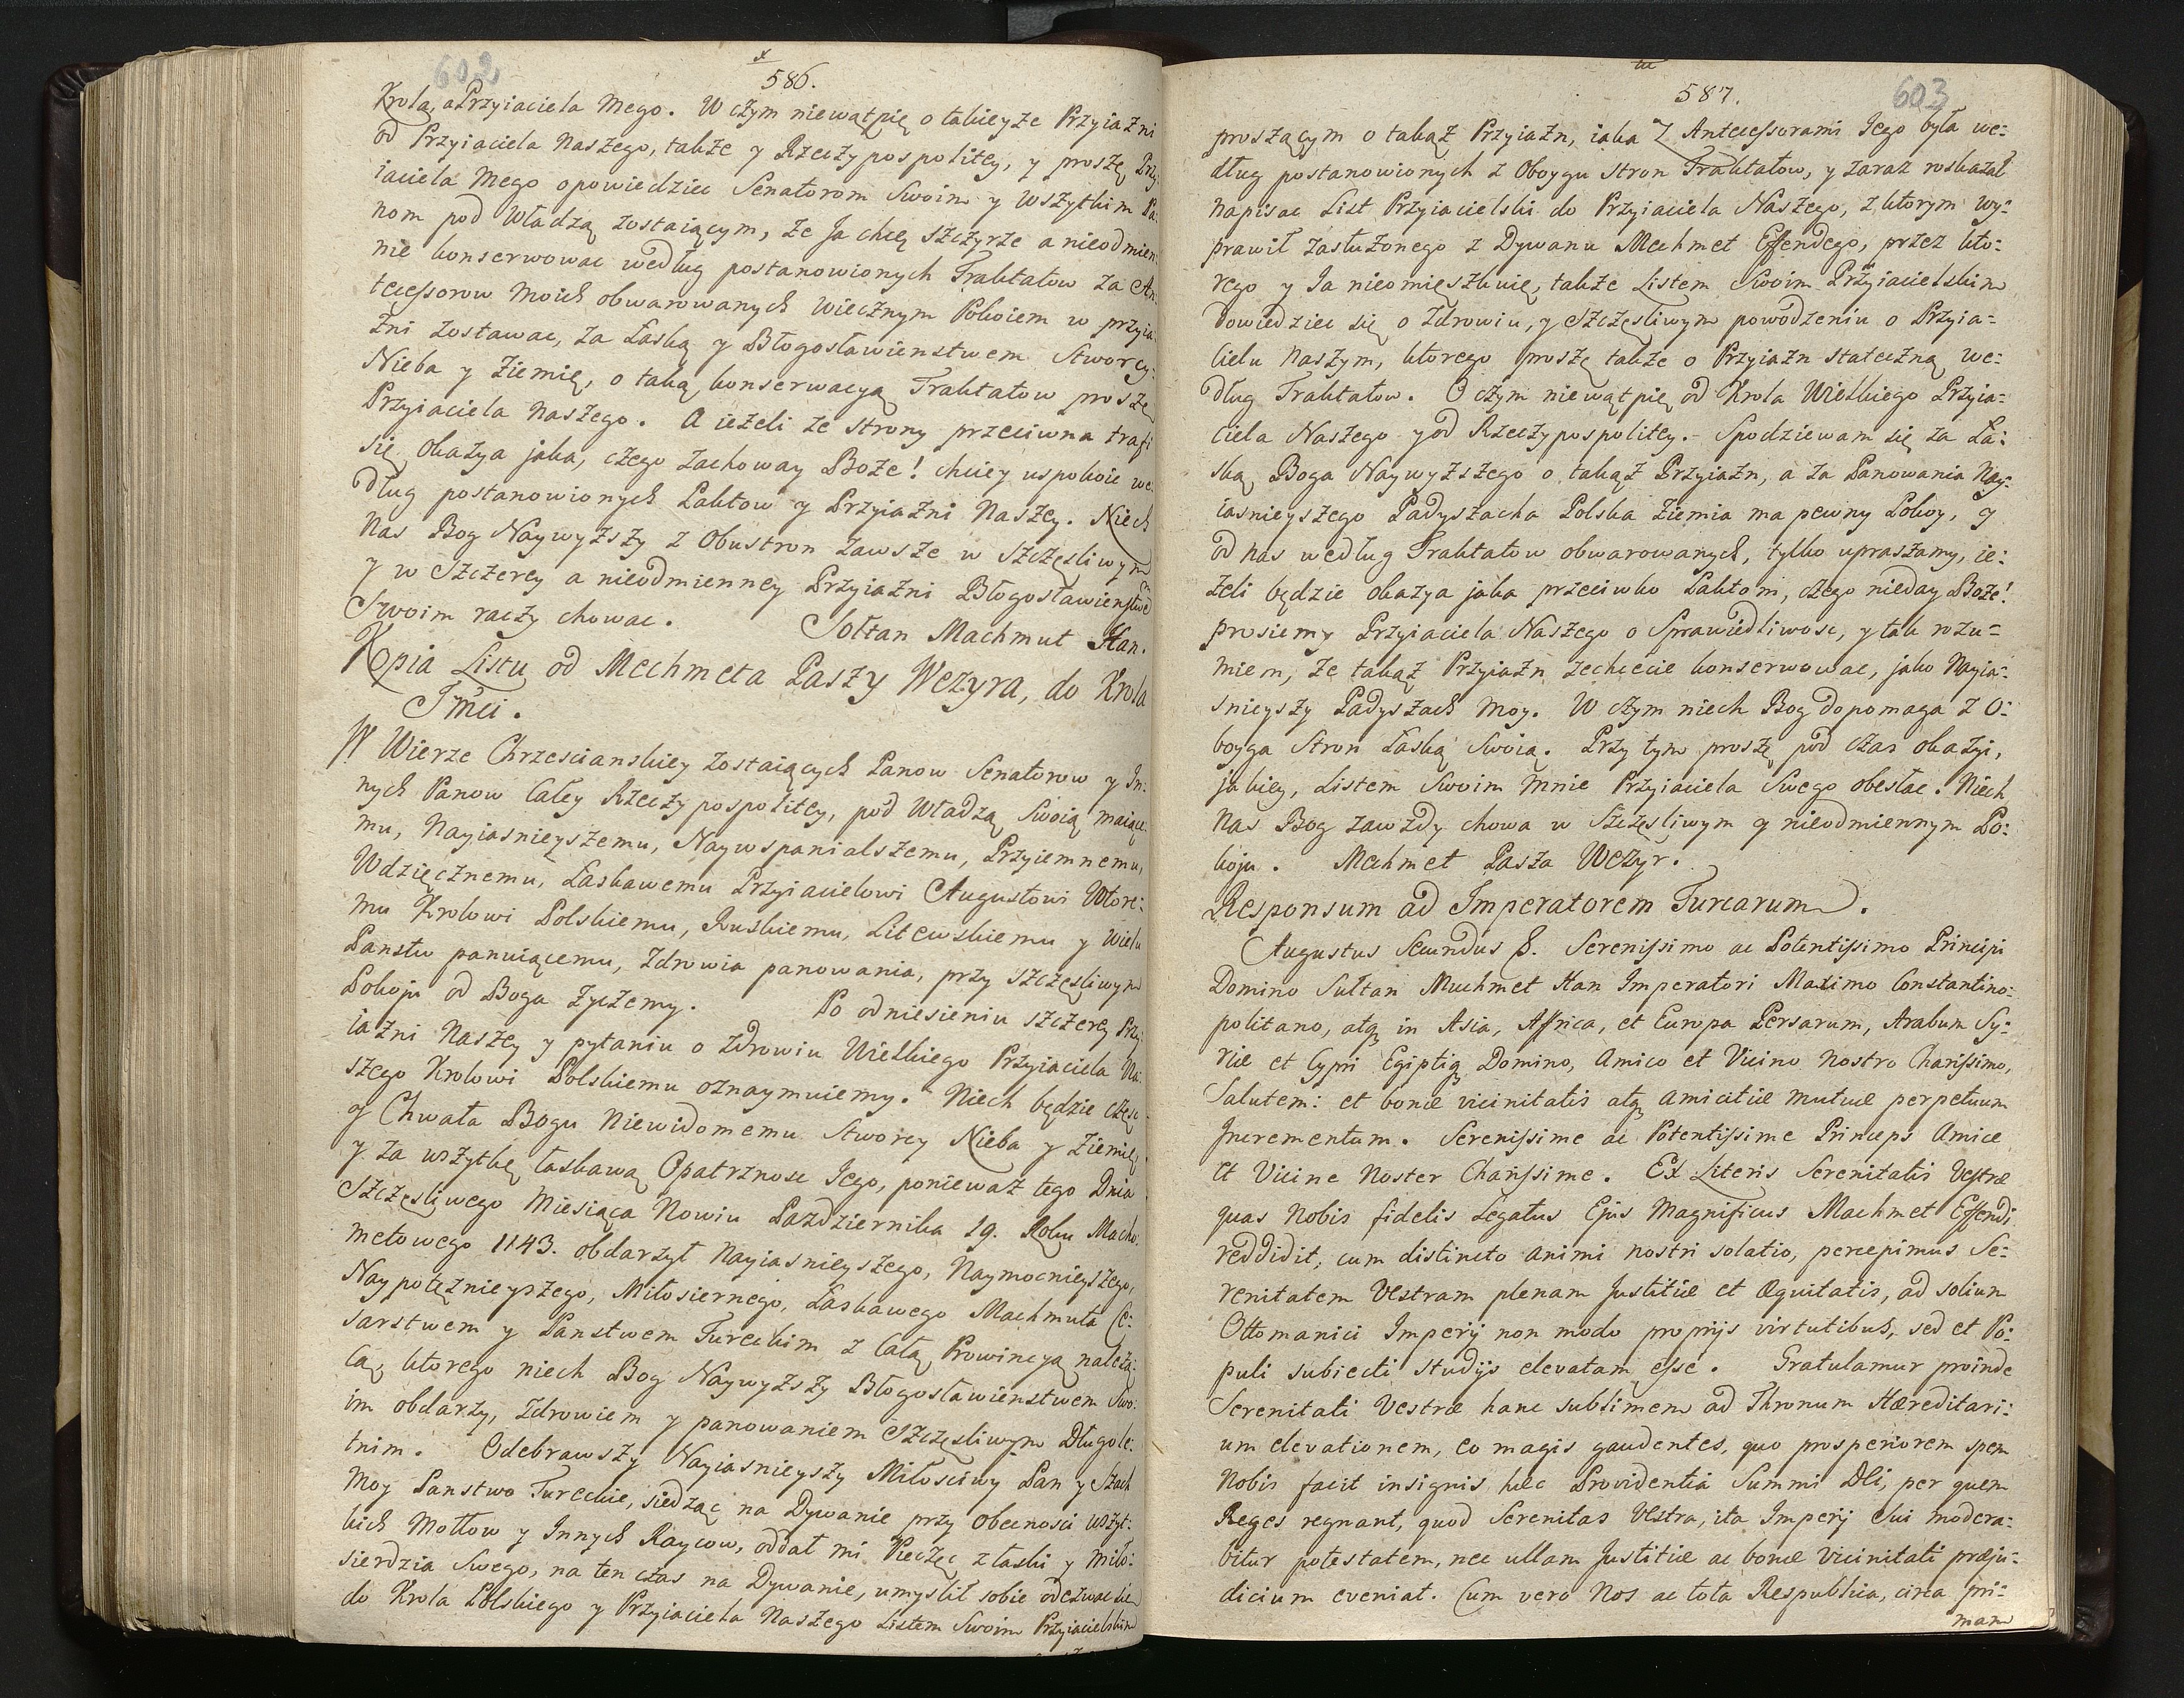 602
586.
Krola, a Przyiaciela Mego. W czym niewątpię o takieyze Przyiazni
od Przyiaciela Naszego, także y Rzeczypospolitey, y proszę Przy-
iaciela Mego opowiedziec Senatorom Swoim y wszytkim Pa-
nom pod Władzą zostaiącym, że Ja chcę szczyrze a nieodmien-
nie konserwowac według postanowionych Traktatow za An-
tecessorow Moich obwarowanych wiecznym Pokoiem w przyia-
zni zostawac, za Łaską y Błogosławienstwem Stworcy
Nieba y Ziemię, o taką konserwacyą Traktatow proszę
Przyiaciela Naszego. A ieżeli ze strony przeciwna trafi
się okazya jaka, czego zachoway Boże! chciey uspokoic we-
dług postanowionych Paktow y Przyiazni Naszey. Niech
Nas Bog Naywyższy z Obustron zawsze w szczęsliwym
y w Szczerey a nieodmienney Przyiazni Błogosławienstwem
Swoim raczy chowac. Sołtan Machmut Han.
Kopia Listu od Mechmeta Paszy Wezyra, do Krola
Jmci.
W Wierze Chrzescianskiey zostaiących Panow Senatorow y In-
nych Panow Całey Rzeczypospolitey, pod Władzą Swoią maiące-
mu, Nayiasnieyszemu, Naywspanialszemu, Przyiemnemu,
Wdzięcznemu, Łaskawemu Przyiacielowi Augustowi Wtore-
mu Krolowi Polskiemu, Ruskiemu, Litewskiemu y wielu
Panstw panuiącemu, Zdrowia panowania, przy szczęsliwym
Pokoju od Boga życzemy. Po odniesieniu szczerey Przy-
iazni Naszey y pytaniu o zdrowiu Wielkiego Przyiaciela Na-
szego Krolowi Polskiemu oznaymuiemy. Niech będzie częsc
y Chwała Bogu Niewidomemu Stworcy Nieba y Ziemię,
y za wszytkę łaskawą Opatrznosc Jego, ponieważ tego Dnia
Szczęsliwego Miesiąca Nowiu Pazdziernika 19. Roku Macho-
metowego 1143. obdarzył Nayiasnieyszego, Naymocnieyszego,
Naypotężnieyszego, Miłosiernego, Łaskawego Machmuta Ce-
sarstwem y Panstwem Tureckim z Całą Prowincyą należą-
cą, ktorego niech Bog Naywyższy Błogosławienstwem Swo-
im obdarzy, zdrowiem y panowaniem Szczęsliwym Długole-
tnim. Odebrawszy Nayiasnieyszy Miłosciwy Pan y Szach
Moy Panstwo Tureckie, siedząc na Dywanie przy Obecnosci wszyt-
kich Mołłow y Innych Raycow, oddał mi Pieczęc z łaski y miło-
sierdzia Swego, na ten czas na Dywanie, umyslił sobie odezwac się
do Krola Polskiego y Przyiaciela Naszego Listem Swoim Przyiacielskim
587.
603
proszącym o takąż Przyiazn, iaka z Antecessorami Jego była we-
dług postanowionych z Oboygu Stron Traktatow, y zaraz roskazał
napisac List Przyiacielski do Przyiaciela Naszego, z ktorym wy-
prawił zasłużonego z Dywanu Mechmet Effendego, przez kto-
rego y Ja nieomięszkuię, także Listem Swoim Przyiacielskim
dowiedziec się o zdrowiu, y Szczęsliwym powodzeniu o Przyia-
cielu Naszym, ktorego proszę także o Przyiazn stateczną we-
dług Traktatow. O czym niewątpię od Krola Wielkiego Przyia-
ciela Naszego y od Rzeczypospolitey. Spodziewam się za Ła-
ską Boga Naywyższego o takąż Przyiazn, a za Panowania Nay-
iasnieyszego Padyszacha Polska Ziemia ma pewny Pokoy, y
od nas według Traktatow obwarowanych, tylko upraszamy, ie-
żeli będzie okazya jaka przeciwko Paktom, czego nieday Boże!
prosiemy Przyiaciela Naszego o Sprawiedliwosc, y tak rozu-
miem, że takąż Przyiazn zechcecie konserwowac, jako Nayia-
snieyszy Padyszach Moy. W czym niech Bog dopomaga z O-
boyga Stron Łaską Swoią. Przy tym proszę pod czas okazyi,
jakiey, Listem Swoim mnie Przyiaciela Swego obesłac. Niech
Nas Bog zawzdy chowa w Szczęsliwym y nieodmiennym Po-
koju. Mechmet Pasza Wezyr.
Responsum ad Imperatorem Turcarum.
Augustus Secundus &. Serenissimo ac Potentissimo Principi
Domino Sultan Muchmet Han Imperatori Maximo Constantino-
politano, atq in Asia, Affrica, et Europa Persarum, Arabum Sy-
riæ et Cypri Egiptiq Domino, Amico et Vicino Nostro Charissimo,
Salutem: et bonæ vicinitatis atq amicitiæ mutuæ perpetuum
Incrementum. Serenissime ac Potentissime Princeps Amice
et Vicine Noster Charissime. Ex Literis Serenitatis Vestræ
quas Nobis fidelis Legatus Ejus Magnificus Machmet Effendi
reddidit, cum distincto animi nostri solatio, percepimus Se-
renitatem Vestram plenam Justitiæ et Æquitatis, ad solium
Ottomanici Imperij non modo proprijs virtutibus, sed et Po-
puli subiecti studijs elevatam esse. Gratulamur proinde
Serenitati Vestræ hanc sublimem ad Thronum Hæreditari-
um elevationem, eo magis gaudentes, quo prosperiorem spem
Nobis facit insignis hæc Providentia Summi DEi, per quem
Reges regnant, quod Serenitas Vestra, ita Imperij Sui modera-
bitur potestatem, nec ullam Justitiæ ac bonæ Vicinitati præju-
dicium eveniat. Cum vero Nos ac tota Respublica, circa pri-
mam